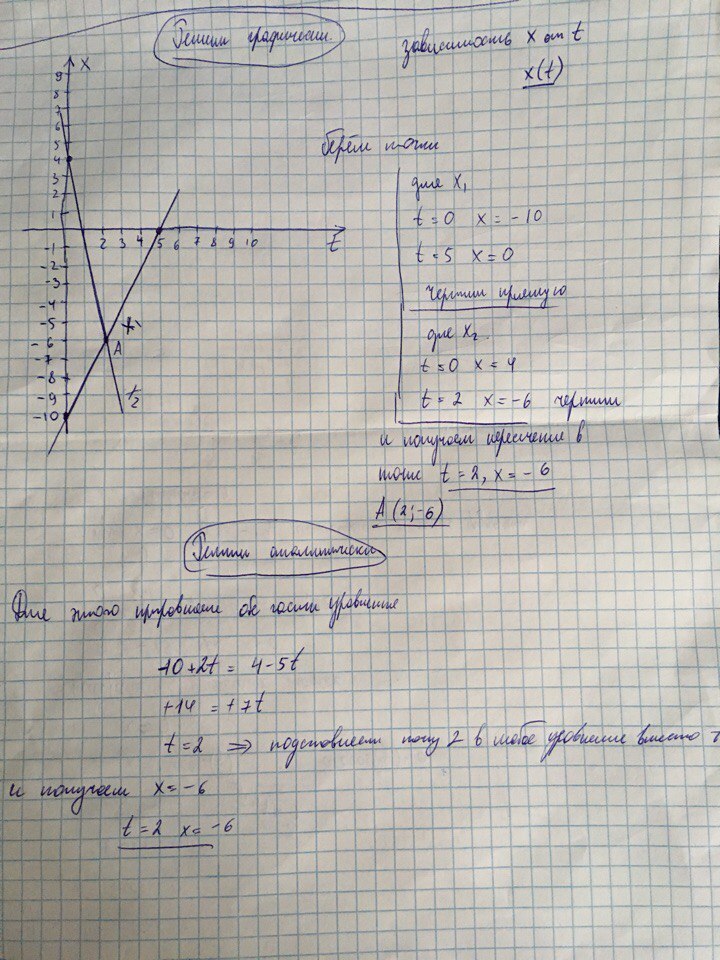 Решим графически
зависимость x от t
x(t)
x
9
8
7
6
5
4
3
2
1
-1
-2
-3
-4
-5
-6
-7
-8
-9
-10
2 3 4 5 6 7 8 9 10
t
x1
A
x2
берём точки
для x1
t=0 x=-10
t=5 x=0
чертим прямую
для x2
t=0 x=4
t=2 x=-6 чертим
и получаем пересечение в
точке t=2, x=-6
A(2;-6)
Решим аналитически
Для этого приравняем обе части уравнение
-10+2t = 4-5t
+14 = +7t
t=2 => подставляем 2 в любое уравнение вместо t
и получаем x=-6
t=2 x=-6